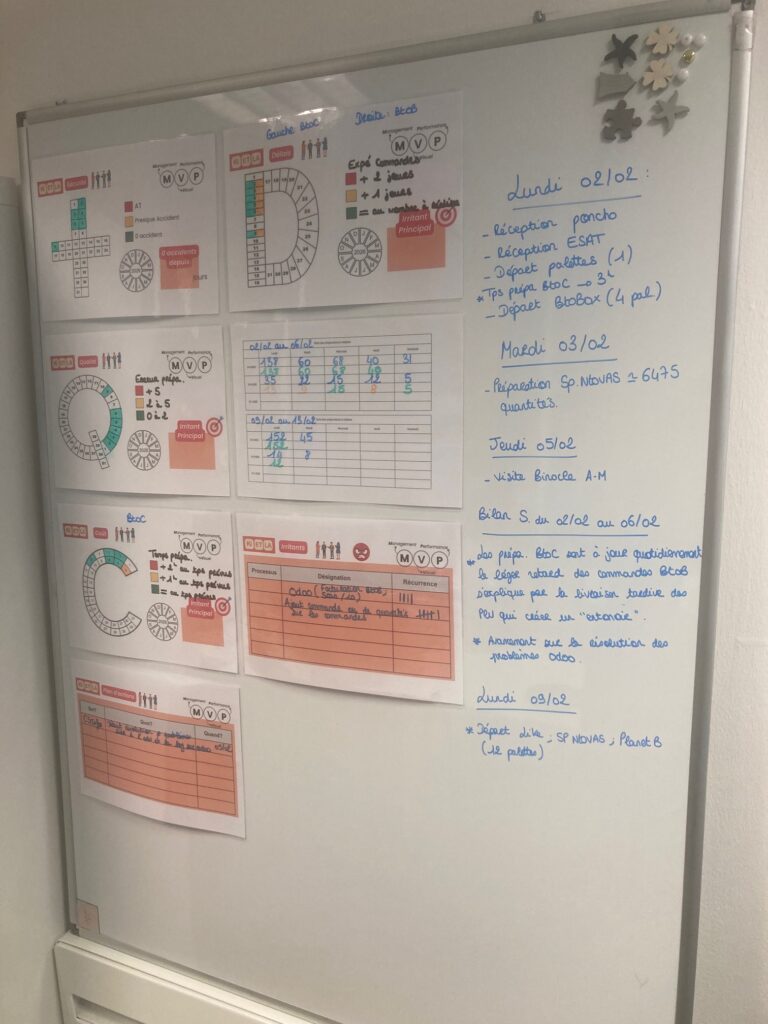 Gauche BtoC
Droite: BtoB
KI ET LA
Sécurité
Management
Performance
MVP
visuel
AT
Presque Accident
0 accident
0 accidents
depuis
jours
2026
KI ET LA
Délais
Management
Performance
MVP
visuel
Expé Commandes
+ 2 jours
+ 1 jours
Irritant
Principal
2026
KI ET LA
Qualité
Management
Performance
MVP
visuel
Erreur prépa
+ 5
2 à 5
0 à 2
Irritant
Principal
2026
02/02 au 06/02
138 60 68 40 31
138 60 68 40
35 22 15 12 5
09/02 au 13/02
152 45
152
14 8
12
BtoC
Coût
Management
Performance
MVP
visuel
Temps prépa
+ 2h au tps prévus
+ 1h au tps prévus
= au tps prévus
Irritant
Principal
2026
KI ET LA
Irritants
Management
Performance
MVP
visuel
Processus
Désignation
Récurrence
Odoo (Facturation BtoB,
Ajout commande ou de quantités
sur les commandes
KI ET LA
Plan d'actions
Management
Performance
MVP
visuel
Qui?
Quoi?
Quand?
Lundi 02/02 :
- Réception poncho
- Réception ESAT
- Départ palettes (1)
* Tps prépa BtoC → 3h
- Départ BtoBox (4 pal.)
Mardi 03/02
- Préparation Sp. NOVAS ≃ 6475
quantités.
Jeudi 05/02
- Visite Binocle A-M
Bilan S. du 02/02 au 06/02
* Les prépa. BtoC sont à jour quotidiennement
le léger retard des commandes BtoB
s'explique par la livraison tardive des
PLV qui créer un "entonnoir".
* Avancement sur la résolution des
problèmes Odoo.
Lundi 09/02
* Départ Like ; SP NOVAS ; Planet B
(12 palettes)